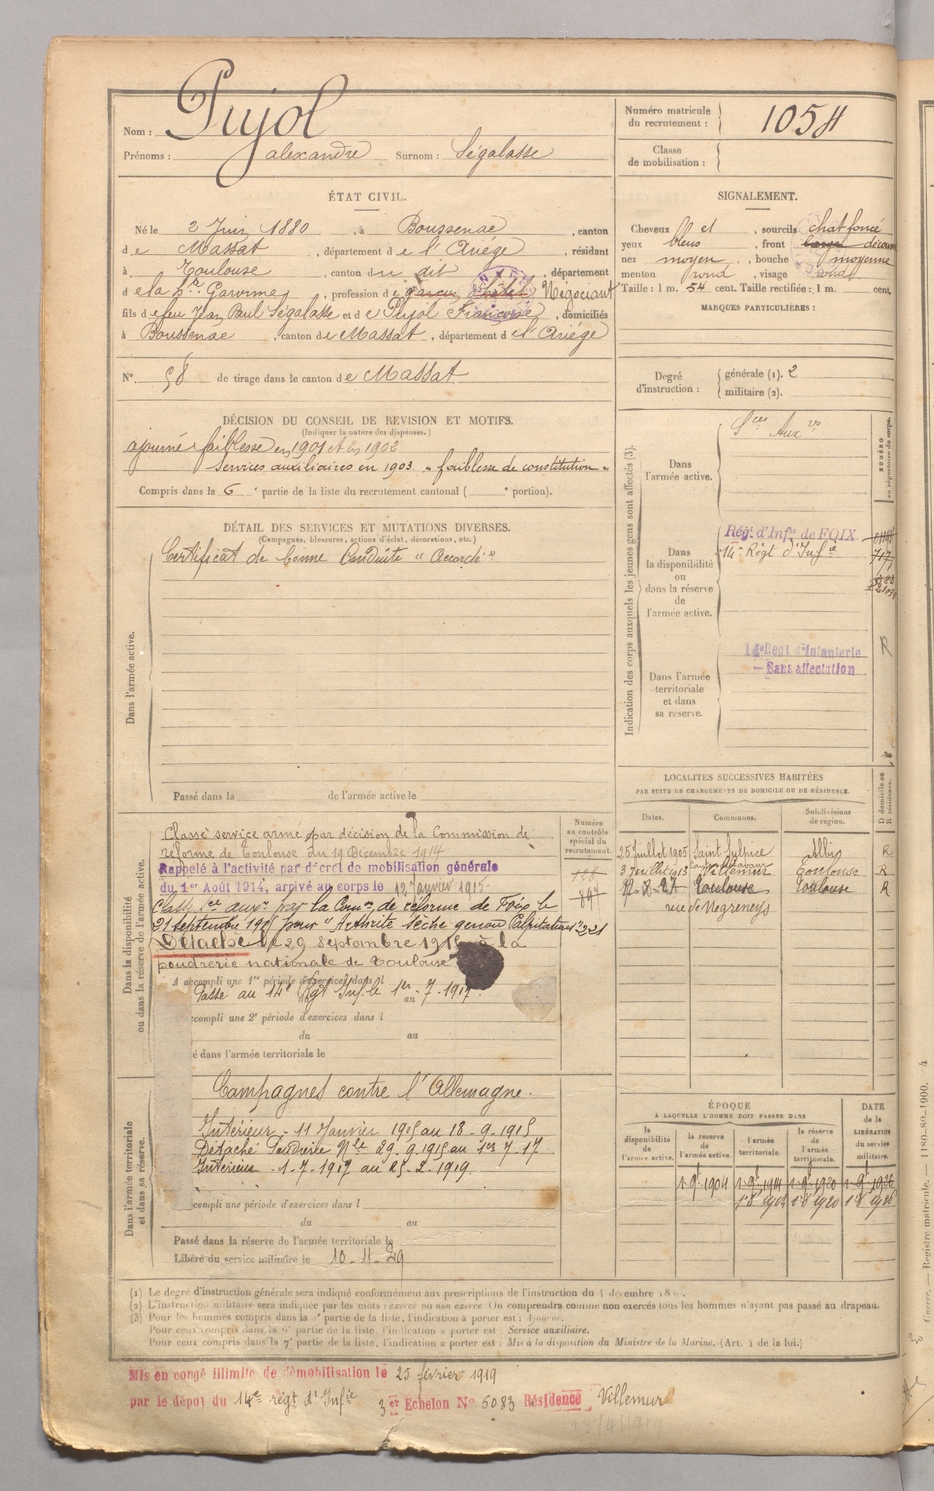 Nom : Pujol
Prénoms : alexandre Surnom : Ségalasse
Numéro matricule du recrutement : 1054
Classe de mobilisation :
ÉTAT CIVIL.
Né le 2 Juin 1880, à Boussenac, canton
de Massat, département de l'Ariége, résidant
à Toulouse, canton du dit, département
de la Hte Garonne, profession de Négociant
fils de feu Jean Paul Ségalasse et de Pujol Françoise, domiciliés
à Boussenac, canton de Massat, département de l'Ariége
N° 58 de tirage dans le canton de Massat
SIGNALEMENT.
Cheveux et, sourcils chat foncé
yeux bleus, front large découv
nez moyen, bouche moyenne
menton rond, visage rond
Taille : 1 m. 54 cent. Taille rectifiée : 1 m. cent.
MARQUES PARTICULIÈRES :
Degré d'instruction : générale (1). 2
militaire (2).
DÉCISION DU CONSEIL DE REVISION ET MOTIFS.
(Indiquer la nature des dispenses.)
ajourné faiblesse en 1901 et en 1902
Services auxiliaires en 1903 "faiblesse de constitution"
Compris dans la 6e partie de la liste du recrutement cantonal ( e portion).
DÉTAIL DES SERVICES ET MUTATIONS DIVERSES.
(Campagnes, blessures, actions d'éclat, décorations, etc.)
Dans l'armée active.
Certificat de bonne Conduite "Accordé"
Passé dans la de l'armée active le
Indication des corps auxquels les jeunes gens sont affectés (3).
NUMÉRO au répertoire du corps.
Dans l'armée active.
Sces Auxres
Dans la disponibilité ou dans la réserve de l'armée active.
Régt d'Infie de FOIX
14e Régt d'Infie
Dans l'armée territoriale et dans sa réserve.
14e Régt d'Infanterie
Sans affectation
R
Dans la disponibilité ou dans la réserve de l'armée active.
Numéro au contrôle spécial du recrutement.
Classé service armé par décision de la Commission de
réforme de Toulouse du 19 Décembre 1914
Rappelé à l'activité par décret de mobilisation générale
du 1er Août 1914, arrivé au corps le 12 Janvier 1915
Classé sce auxre par la Comon de réforme de Foix le
21 septembre 1915 pour "Arthrite sèche genou Palpitations"
Détaché le 29 Septembre 1915 à la
poudrerie nationale de Toulouse
A accompli une 1re période d'exercices dans l
Passé au 14e Rgt Inf. le 1er-7-1917
au
ccompli une 2e période d'exercices dans l
du au
é dans l'armée territoriale le
LOCALITÉS SUCCESSIVES HABITÉES
PAR SUITE DE CHANGEMENTS DE DOMICILE OU DE RÉSIDENCE.
Dates. Communes. Subdivisions de région. D domicile ou R résidence.
25 Juillet 1905 Saint Sulpice Albi R
Villemur Toulouse R
Toulouse Toulouse R
rue de Negreneys
Dans l'armée territoriale et dans sa réserve.
Campagnes contre l'Allemagne.
Intérieur - 11 Janvier 1915 au 18.9.1915
Détaché Poudrerie Nle 29.9.1915 au 1er 7 17
Intérieur - 1.7.1917 au 25.2.1919.
ccompli une période d'exercices dans l
du au
Passé dans la réserve de l'armée territoriale le
Libéré du service militaire le 10-11-29
ÉPOQUE
À LAQUELLE L'HOMME DOIT PASSER DANS
DATE de la LIBÉRATION du service militaire.
la disponibilité de l'armée active. la réserve de l'armée active. l'armée territoriale. la réserve de l'armée territoriale.
(1) Le degré d'instruction générale sera indiqué conformément aux prescriptions de l'instruction du 4 décembre
(2) L'instruction militaire sera indiquée par les mots : exercé ou non exercé. On comprendra comme non exercés tous les hommes n'ayant pas passé au drapeau.
(3) Pour les hommes compris dans la 5e partie de la liste, l'indication à porter est : Ajourné.
Pour ceux compris dans la 6e partie de la liste, l'indication à porter est : Service auxiliaire.
Pour ceux compris dans la 7e partie de la liste, l'indication à porter est : Mis à la disposition du Ministre de la Marine. (Art. 4 de la loi.)
Mis en congé illimité de démobilisation le 25 février 1919
par le dépot du 14e régt d'Infie 3er Echelon No 6083 Résidence Villemur
Guerre. — Registre matricule. — 1180-80-1900.